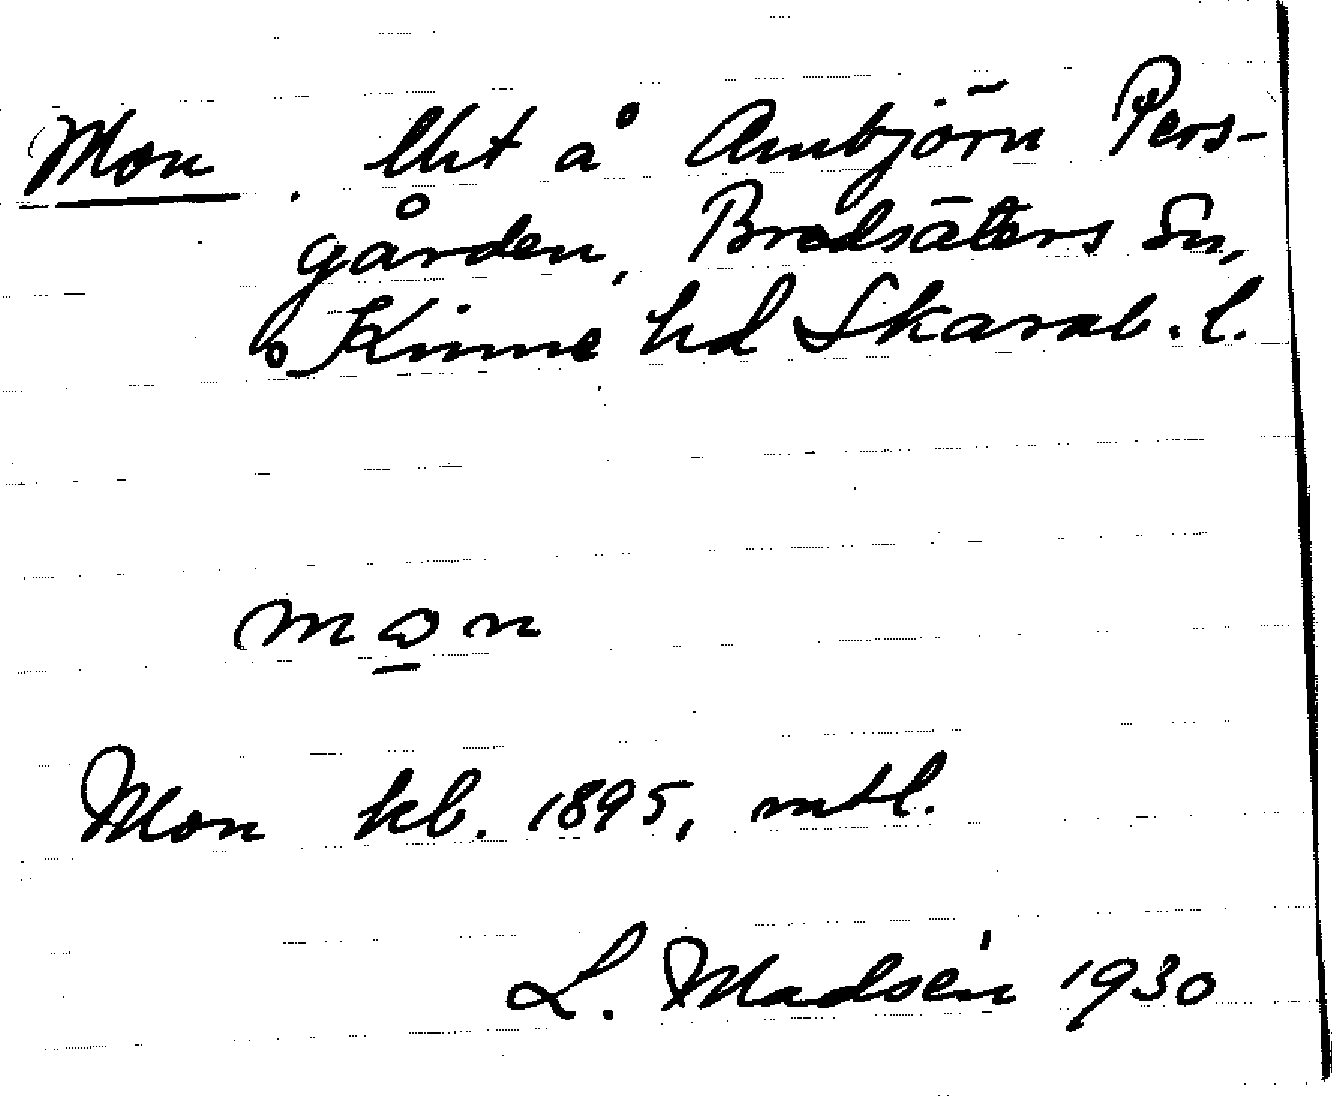 Mon. lht å Ambjörn Pers-
gården, Bredsäters sn,
Kinne hd Skarab. l.
mon
Mon kb. 1895, mtl.
L. Madsén 1930